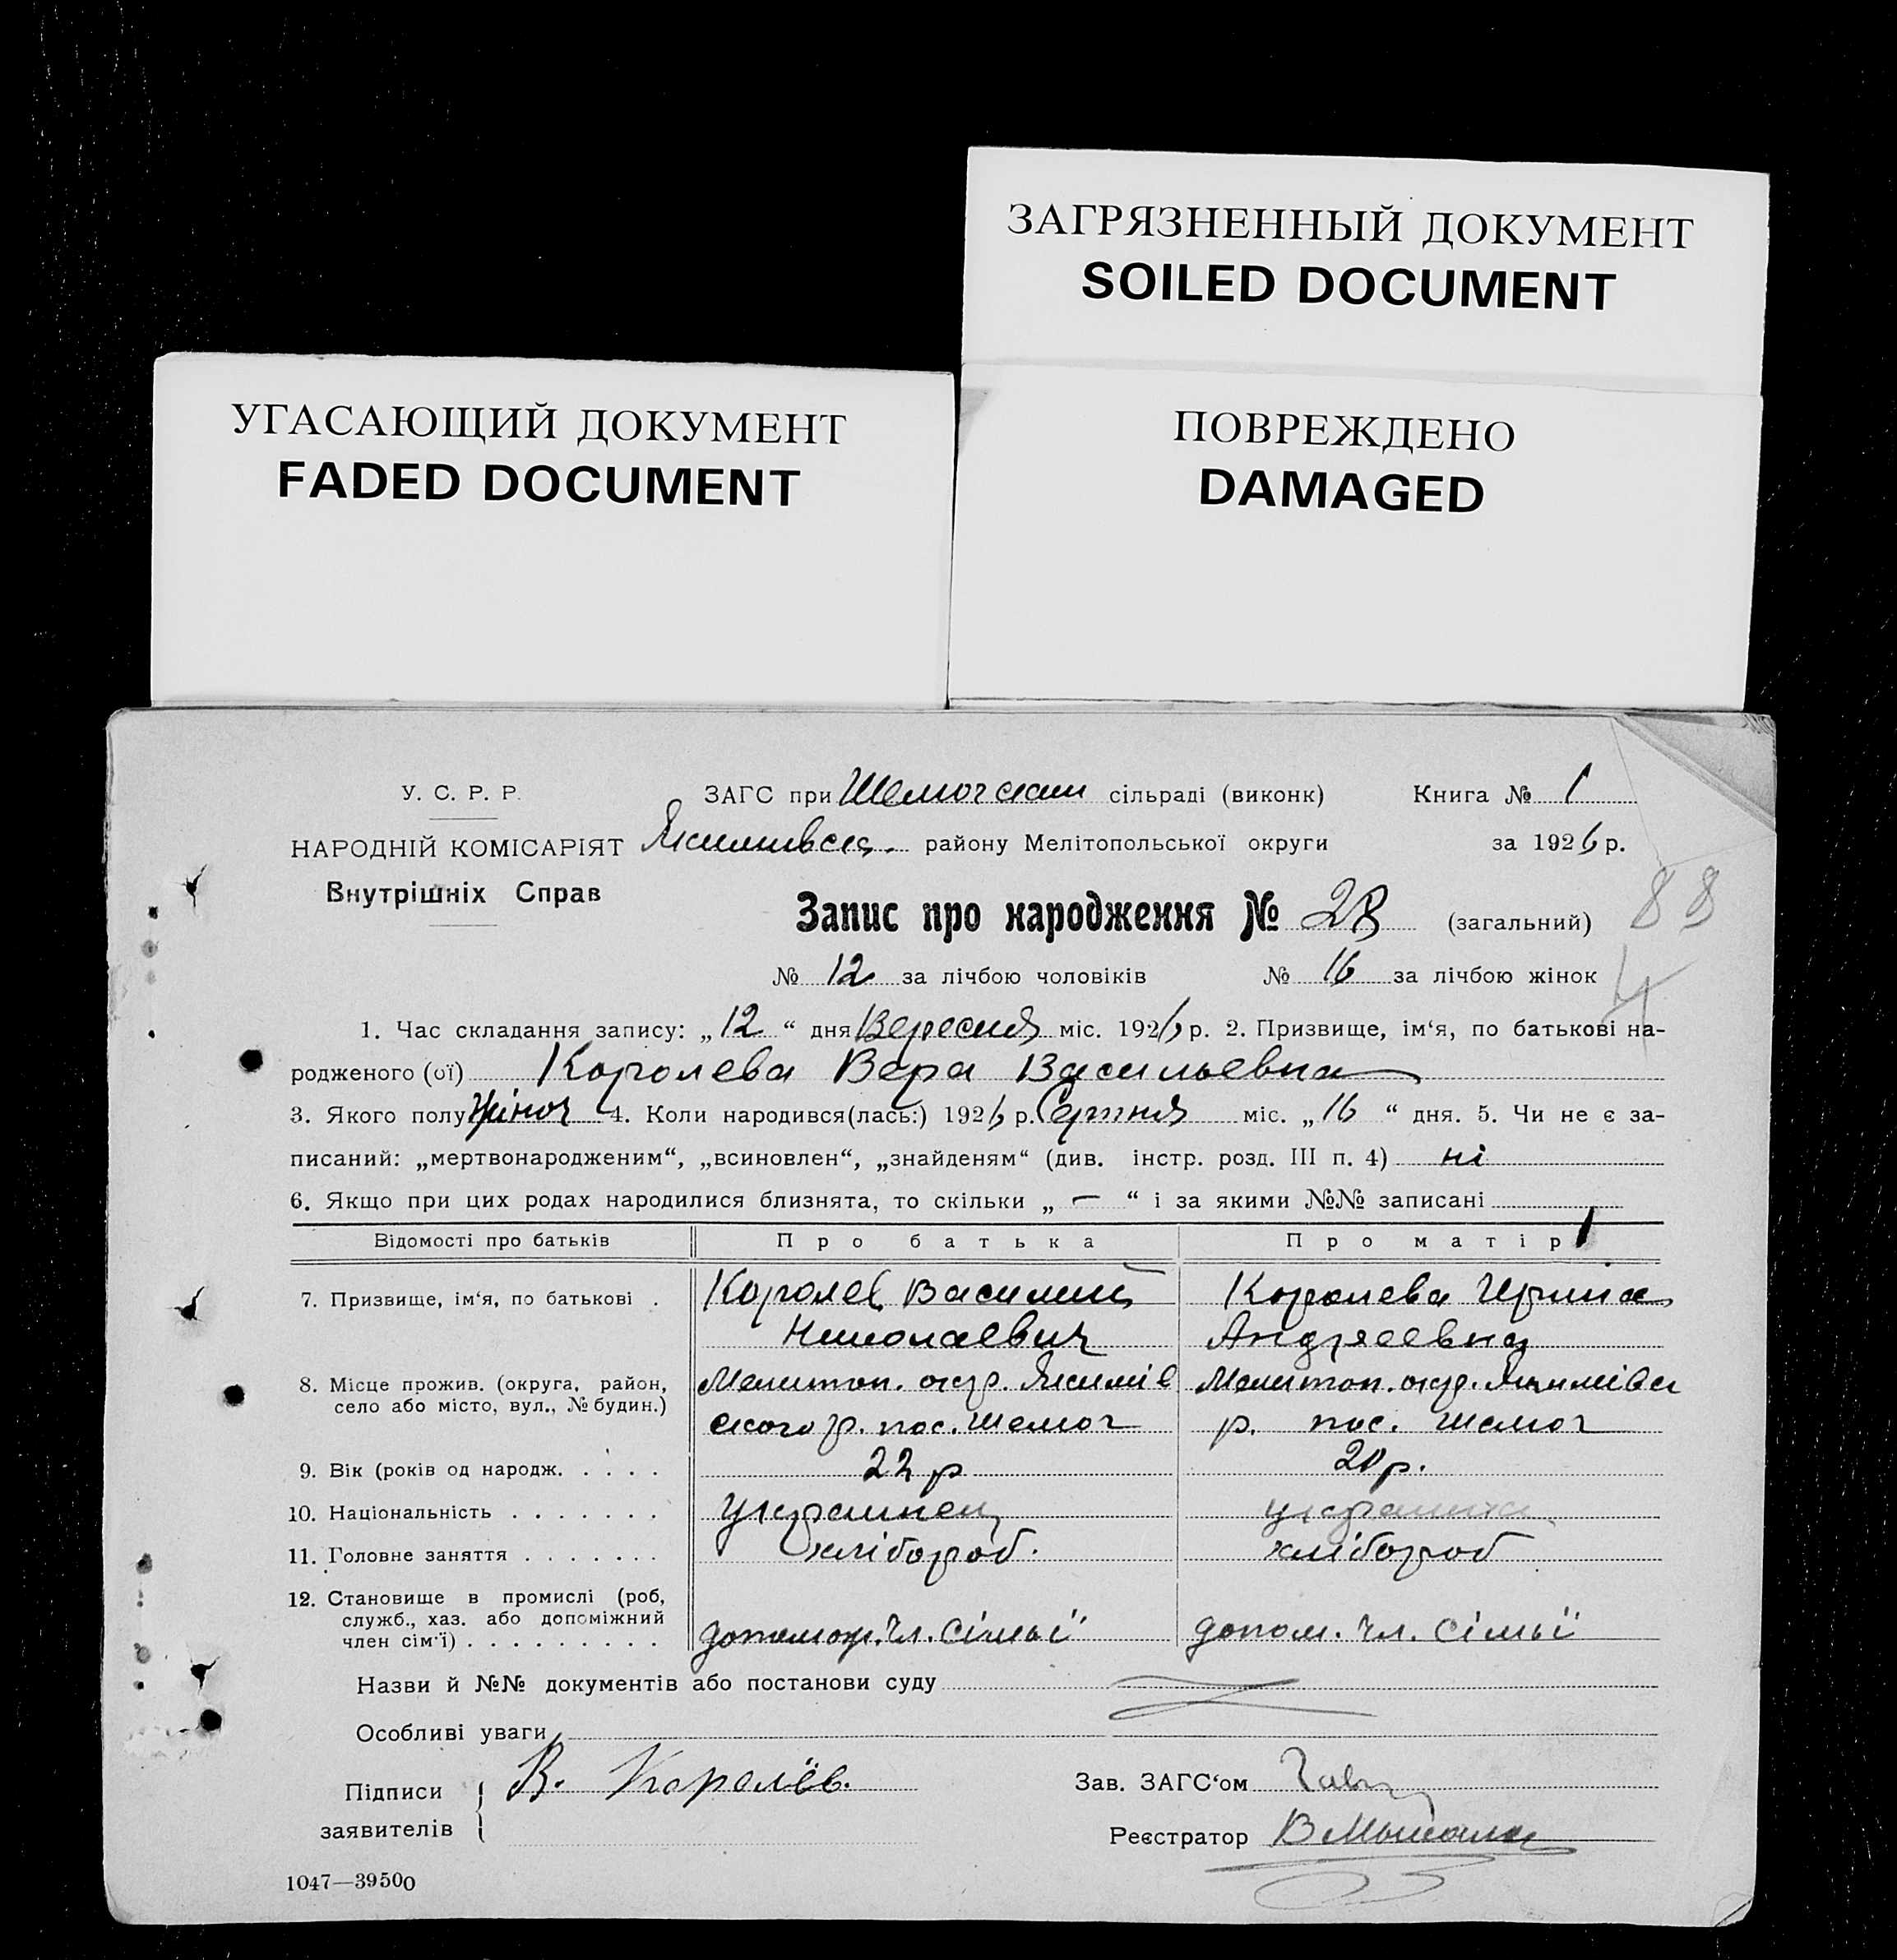 ЗАГРЯЗНЕННЫЙ ДОКУМЕНТ
SOILED DOCUMENT
УГАСАЮЩИЙ ДОКУМЕНТ
FADED DOCUMENT
ПОВРЕЖДЕНО
DAMAGED
У. С. Р. Р.
ЗАГС при сільраді (виконк) Книга № 1
НАРОДНІЙ КОМІСАРІЯТ
району Мелітопольської округи за 1926 р.
Внутрішніх Справ
Запис про народження № 28 (загальний)
88
№ 12 за лічбою чоловіків № 16 за лічбою жінок
4
1. Час складання запису: „12“ дня Вересня міс. 1926 р. 2. Призвище, ім‘я, по батькові на-
родженого (ої) Королева Вера Васильевна
3. Якого полу жіноч 4. Коли народився(лась:) 1926 р. Серпня міс. „16“ дня. 5. Чи не є за-
писаний: „мертвонародженим“, „всиновлен“, „знайденям“ (див. інстр. розд. III п. 4) ні
6. Якщо при цих родах народилися близнята, то скільки „—“ і за якими №№ записані
Відомості про батьків Про батька Про матір
7. Призвище, ім‘я, по батькові . Королев Василий Королева Ирина
Николаевич Андреевна
8. Місце прожив. (округа, район, Мелитоп. окр. Якимів Мелитоп. окр. Якимівск
село або місто, вул., № будин.)
ского р. пос. Шемот р. пос. Шемот
9. Вік (років од народж. . . . . 22 р 20 р.
10. Національність . . . . . . . украинец украинка
11. Головне заняття . . . . . . . хлібороб. хлібороб
12. Становище в промислі (роб,
служб., хаз. або допоміжний
член сім‘ї) . . . . . . . . . допомож. чл. сімьї допом. чл. сімьї
Назви й №№ документів або постанови суду
Особливі уваги
Підписи В. Королёв. Зав. ЗАГС‘ом
заявителів Реєстратор
1047—39500